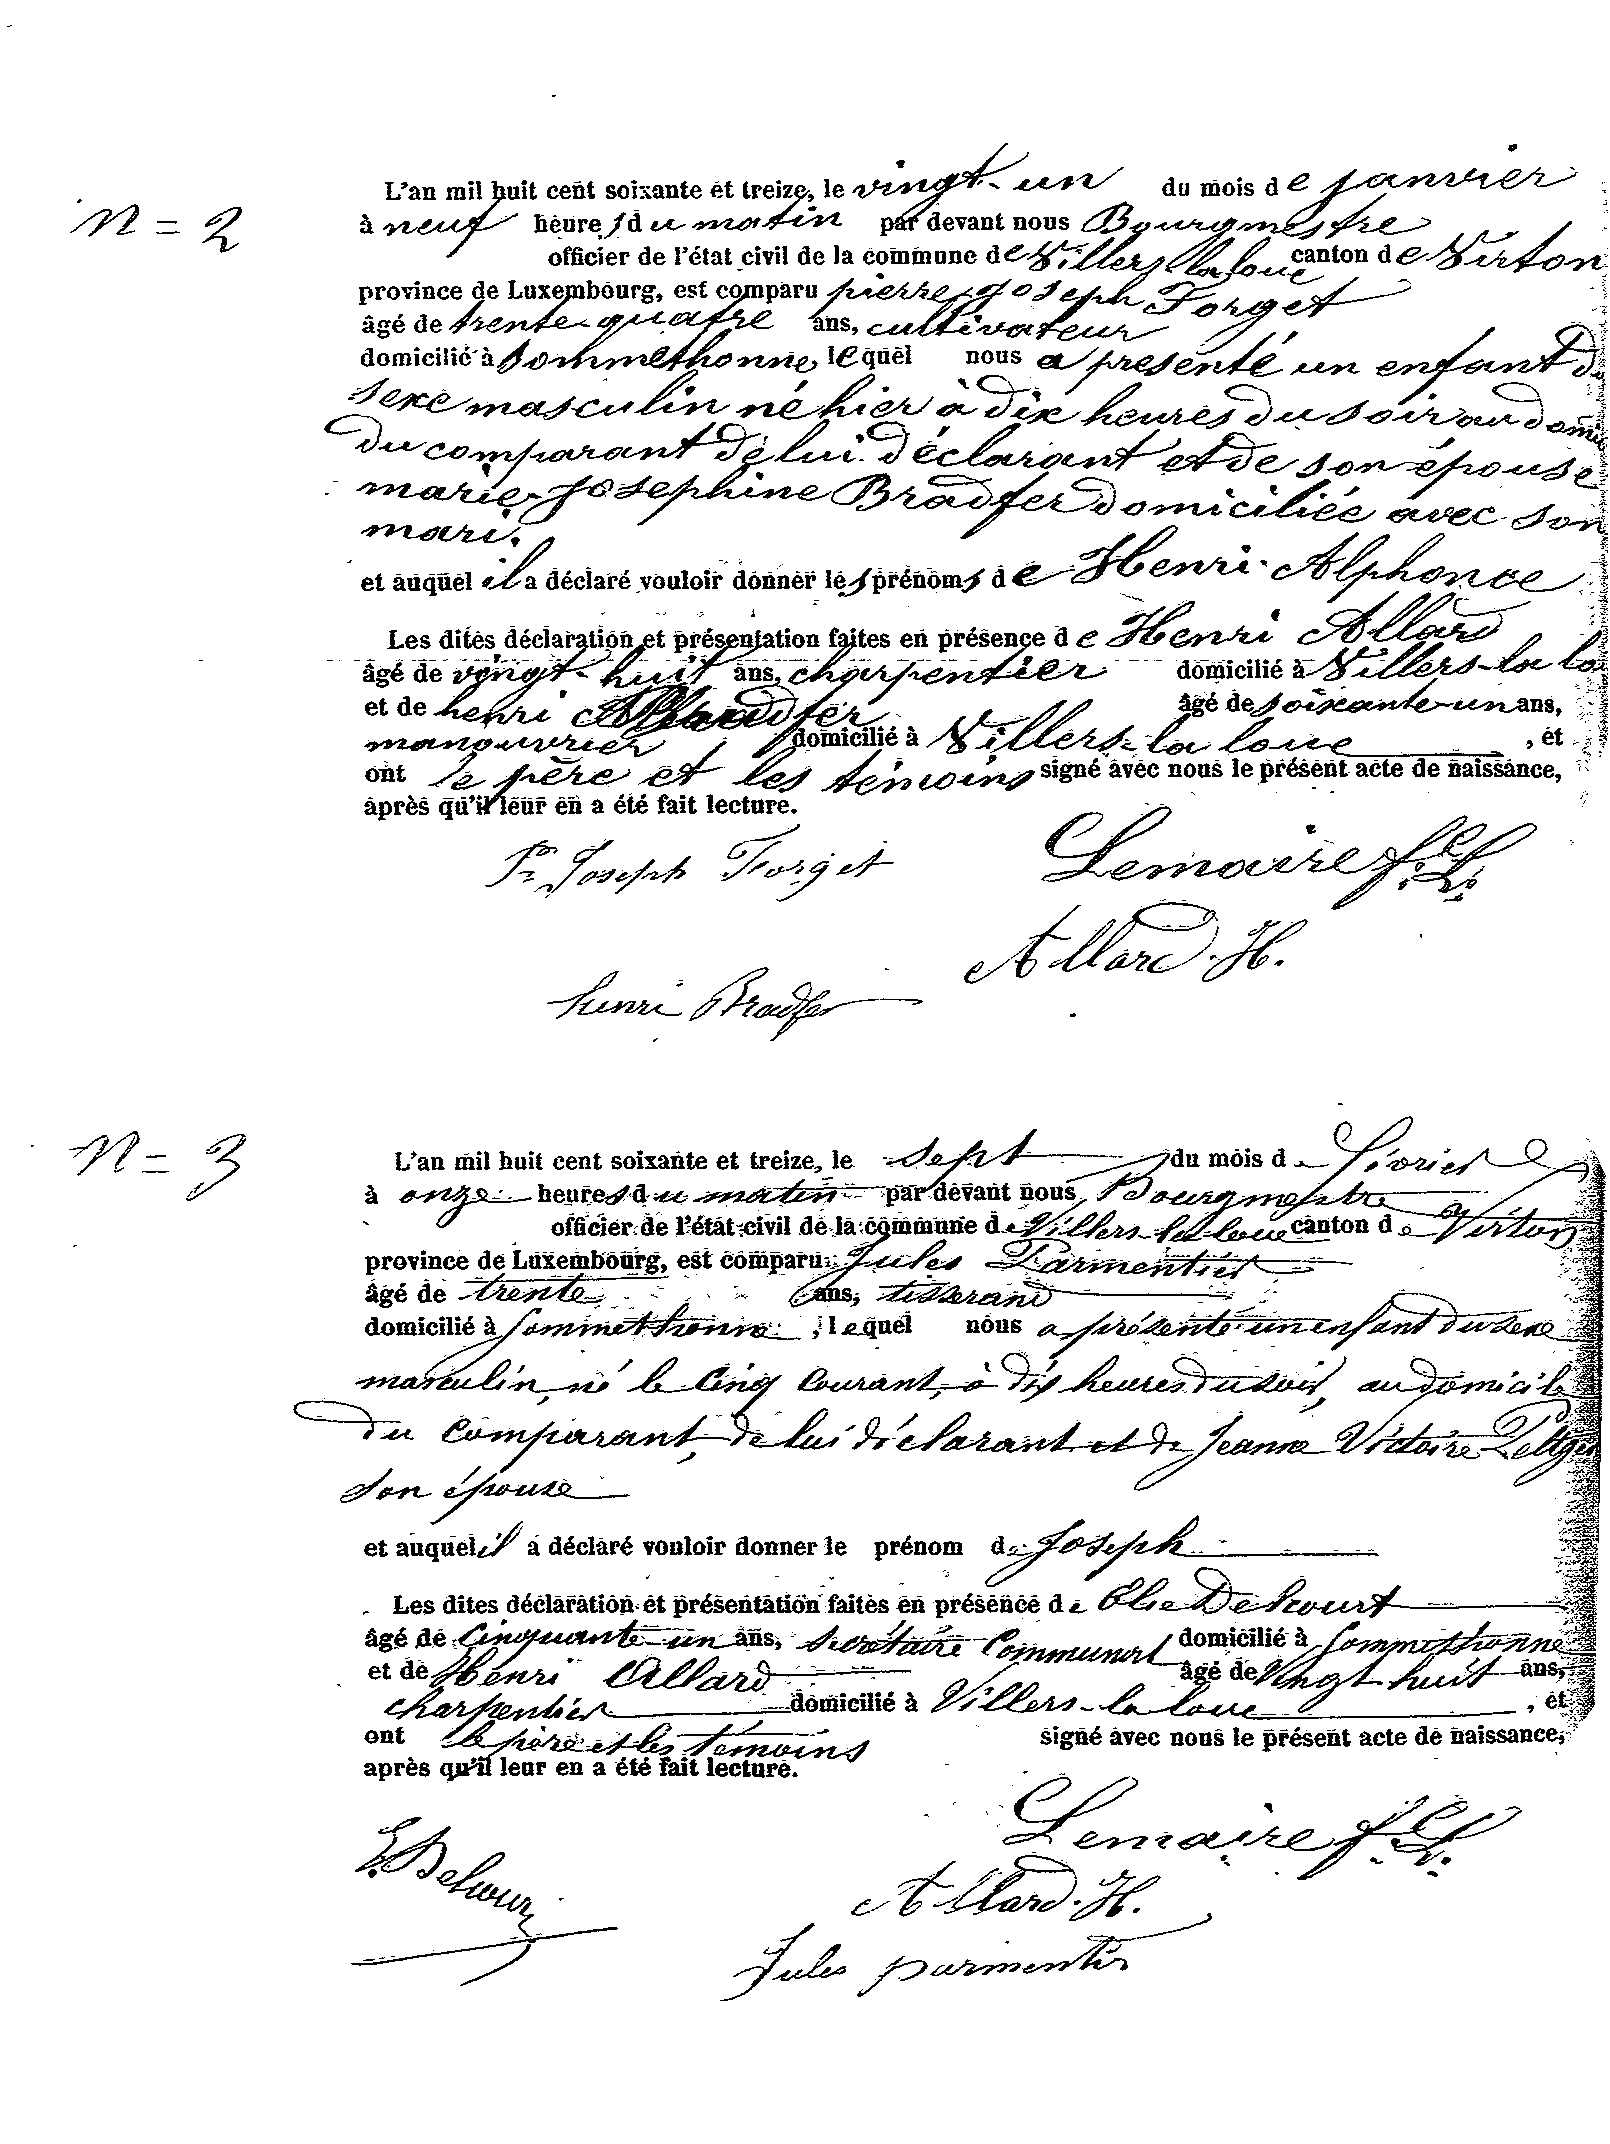 L'an mil huit cent soixante et treize, le vingt-un du mois de janvier
N = 2
à neuf heures du matin par devant nous Bourgmestre
officier de l'état civil de la commune de Villers la loue canton de Virton
province de Luxembourg, est comparu pierre-Joseph Forget
âgé de trente-quatre ans, cultivateur
domicilié à Sommethonne, lequel nous a présenté un enfant du
sexe masculin né hier à dix heures du soir au domi
du comparant de lui déclarant et de son épouse
marie-Josephine Bradfer domiciliée avec son
mari.
et auquel il a déclaré vouloir donner les prénoms de Henri-Alphonce
Les dites déclaration et présentation faites en présence de Henri Allard
âgé de vingt-huit ans, charpentier domicilié à Villers-la lo
et de henri Bradfer âgé de soixante-un ans,
manouvrier domicilié à Villers-la loue , et
ont le père et les témoins signé avec nous le présent acte de naissance,
après qu'il leur en a été fait lecture.
Pre Joseph Forget Lemaire f. L.
Allard. H.
henri Bradfer
N = 3
L'an mil huit cent soixante et treize, le sept du mois de février
à onze heures du matin par devant nous, Bourgmestre
officier de l'état civil de la commune de Villers-la-loue canton de Virton
province de Luxembourg, est comparu Jules Parmentier
âgé de trente ans, tisserand
domicilié à Sommethonne, lequel nous a présenté un enfant du sexe
masculin, né le cinq courant, à dix heures du soir, au domicile
du comparant, de lui déclarant et de Jeanne Victoire
son épouse
et auquel il a déclaré vouloir donner le prénom de Joseph
Les dites déclaration et présentation faites en présence de Elie Delcourt
âgé de cinquante-un ans, secrétaire communal domicilié à Sommethonne
et de Henri Allard âgé de vingt huit ans,
charpentier domicilié à Villers-la loue , et
ont le père et les témoins signé avec nous le présent acte de naissance,
après qu'il leur en a été fait lecture.
Lemaire f. L.
E. Delcourt
Allard. H.
Jules parmentier